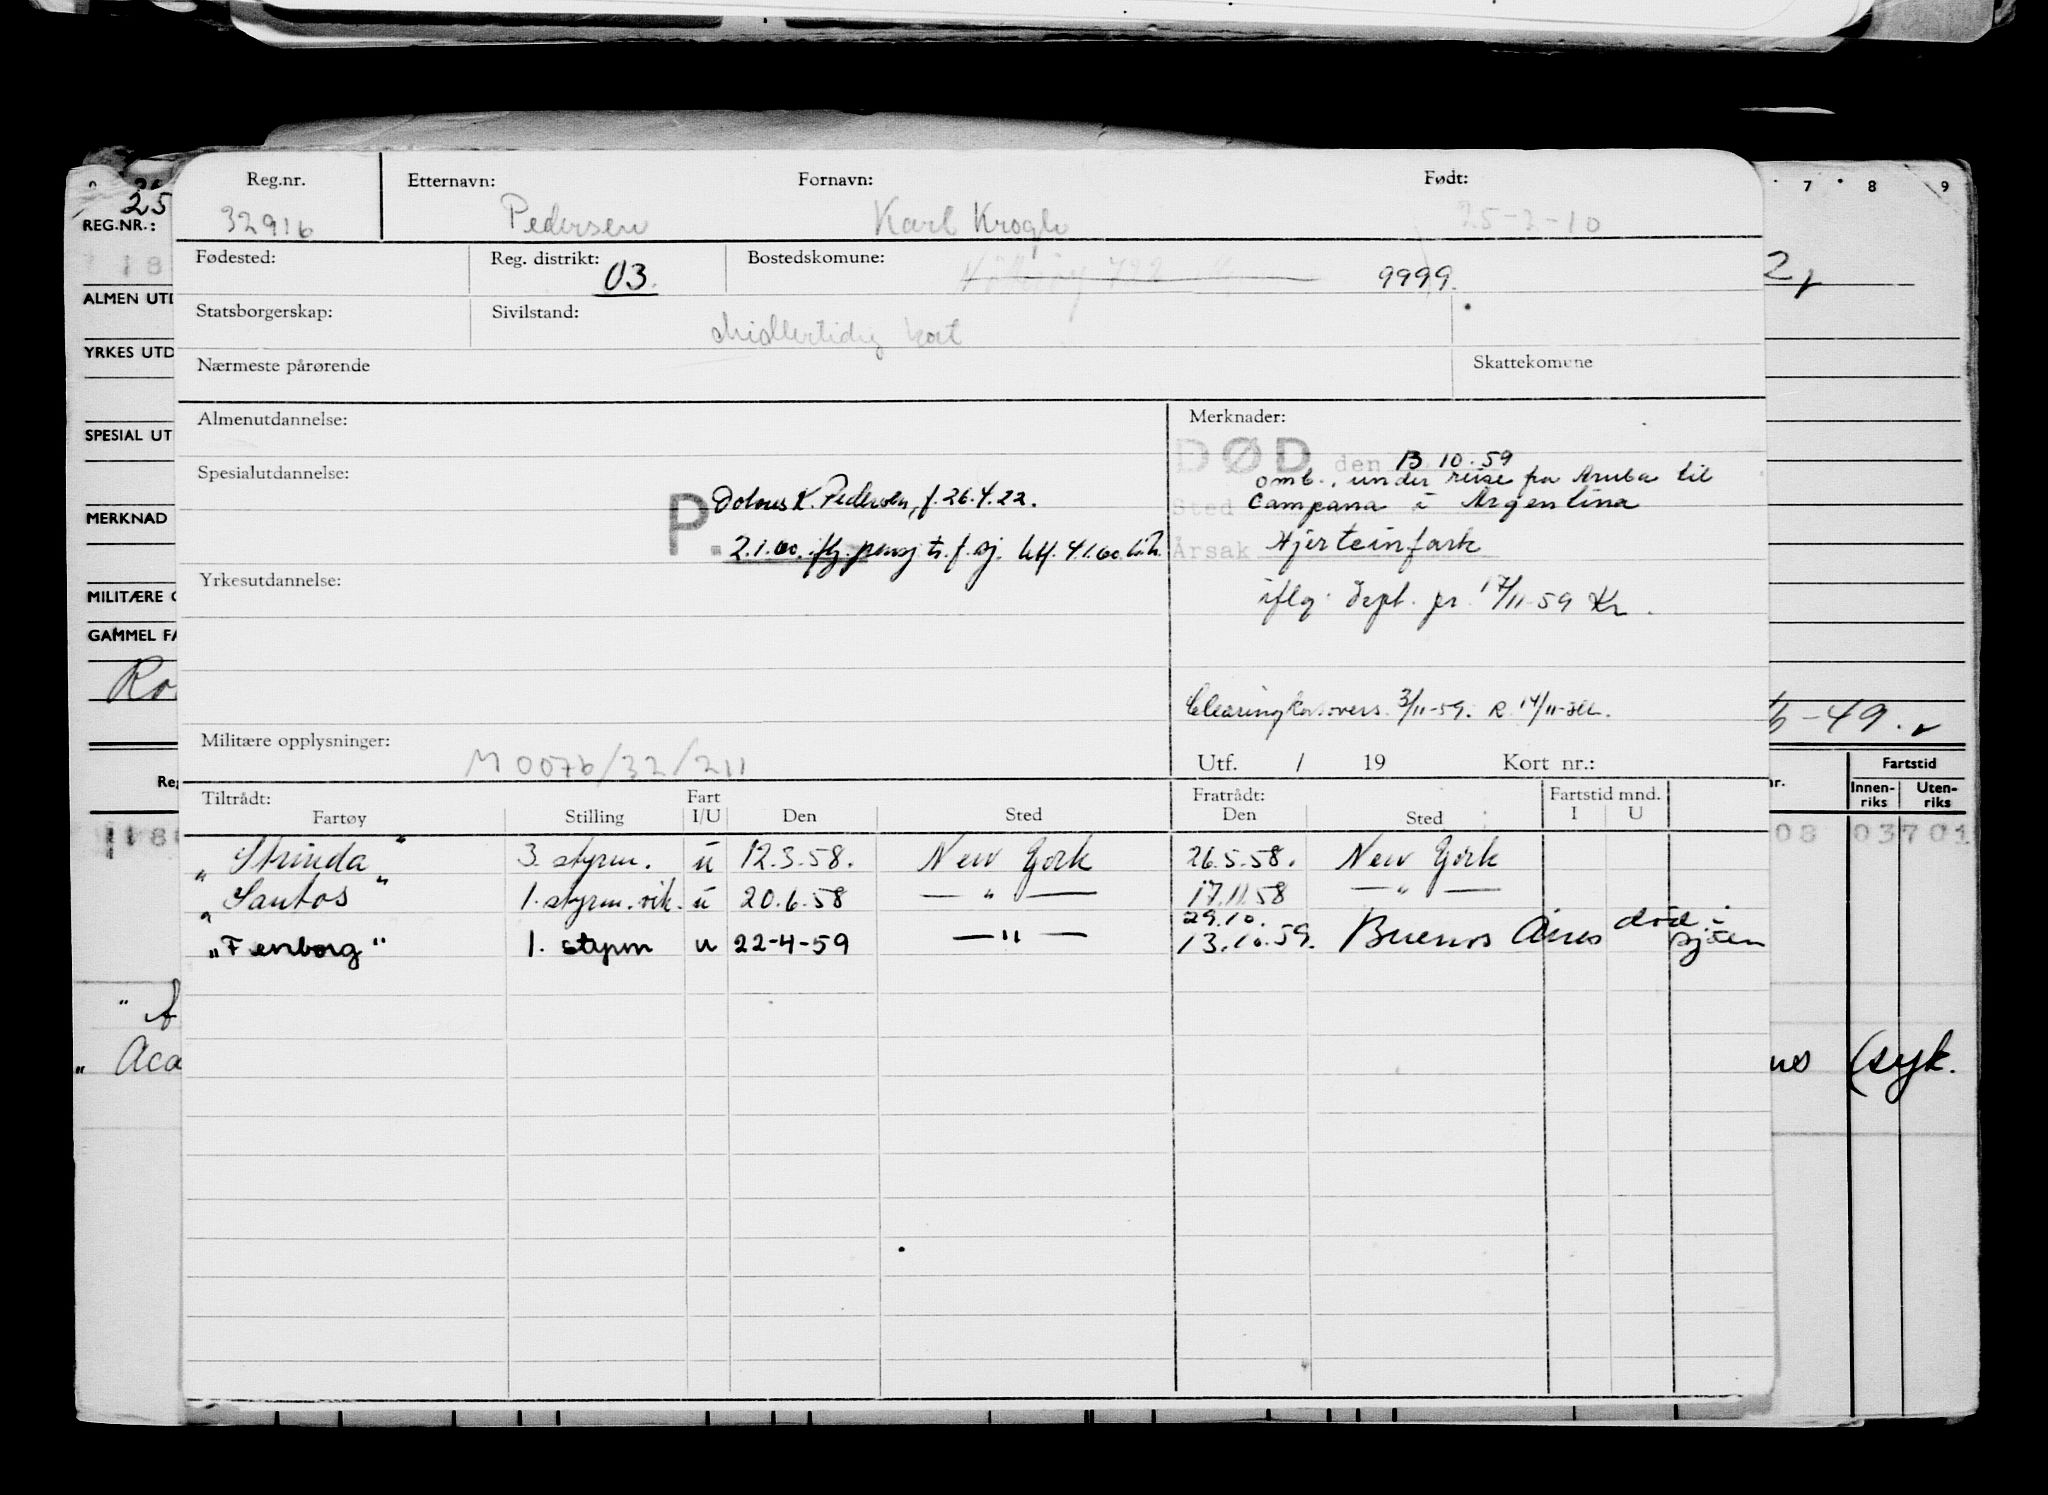 Reg.nr. Etternavn: Fornavn: Født:
32916 Pedersen Karl Krogh 25-2-10
Fødested: Reg. distrikt: 03. Bostedskomune: 9999.
Statsborgerskap: Sivilstand: Midlertidig kort
Nærmeste pårørende Skattekomune
Almenutdannelse: Merknader:
DØD den 13.10.59
Spesialutdannelse: omb., under reise fra Aruba til
P. Dolores K. Pedersen, f. 26.4.22. Sted Campana i Argentina
2.1.60. iflg. pensj. tr. f. sj. Årsak Hjerteinfark
Yrkesutdannelse: iflg. Dept. pr. 17/11-59 Kr.
Clearingkort overs. 3/11-59. R. 14/11-
Militære opplysninger: M 0076/32/211 Utf. / 19 Kort nr.:
Tiltrådt: Fart Fratrådt: Fartstid mnd.
Fartøy Stilling I/U Den Sted Den Sted I U
"Strinda" 3. styrm. u 12.3.58. New York 26.5.58. New York
"Santos" 1. styrm. vik. u 20.6.58 — " — 17.11.58 — " —
29.10.
"Fernborg" 1. styrm u 22-4-59 — " — 13.10.59. Buenos Aires død i sjøen
25
REG.NR.:
18
ALMEN UTD
YRKES UTD
SPESIAL UT
MERKNAD
MILITÆRE
GAMMEL FA
Ro
Reg
118
" A
" Aca
7 8 9
2,
-49.
nr. Fartstid
Innen-riks Uten-riks
08 03701
(syk.